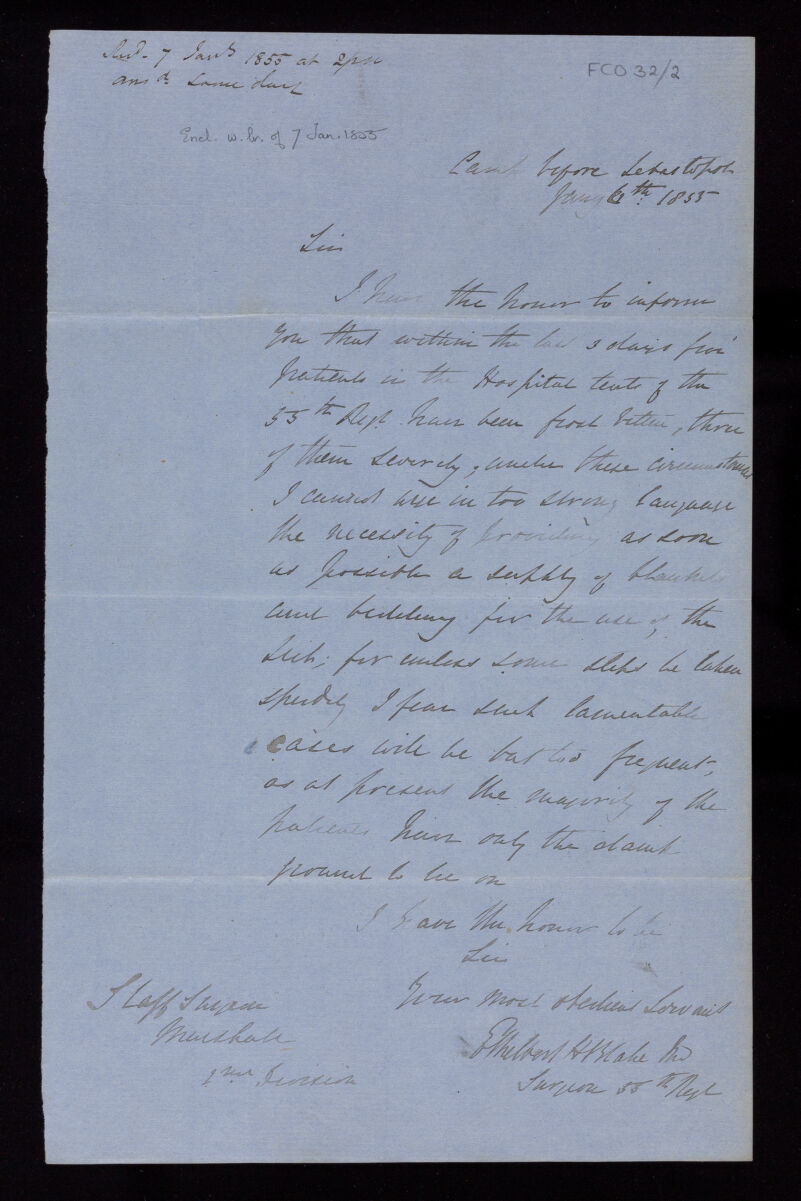 Recd. 7 Jany 1855 at 2pm
ansd. same day
FCO 32/2
Encl. w. lr. of 7 Jan. 1855
Camp before Sebastopol
Jany 6th. 1855
Sir
I have the honor to inform
you that within the last 3 days five
Patients in the Hospital tents of the
55th Regt. have been frost bitten, three
of them severely, under these circumstances
I cannot urge in too strong language
the necessity of providing as soon
as possible a supply of blankets
and bedding for the use of the
sick; for unless some steps be taken
speedily I fear such lamentable
cases will be but too frequent,
as at present the majority of the
patients have only the damp
ground to lie on
I have the honor to be
Sir
Your most obedient Servant
Ethelbert H Blake MD
Surgeon 55th Regt
Staff Surgeon
Marshall
2nd Division